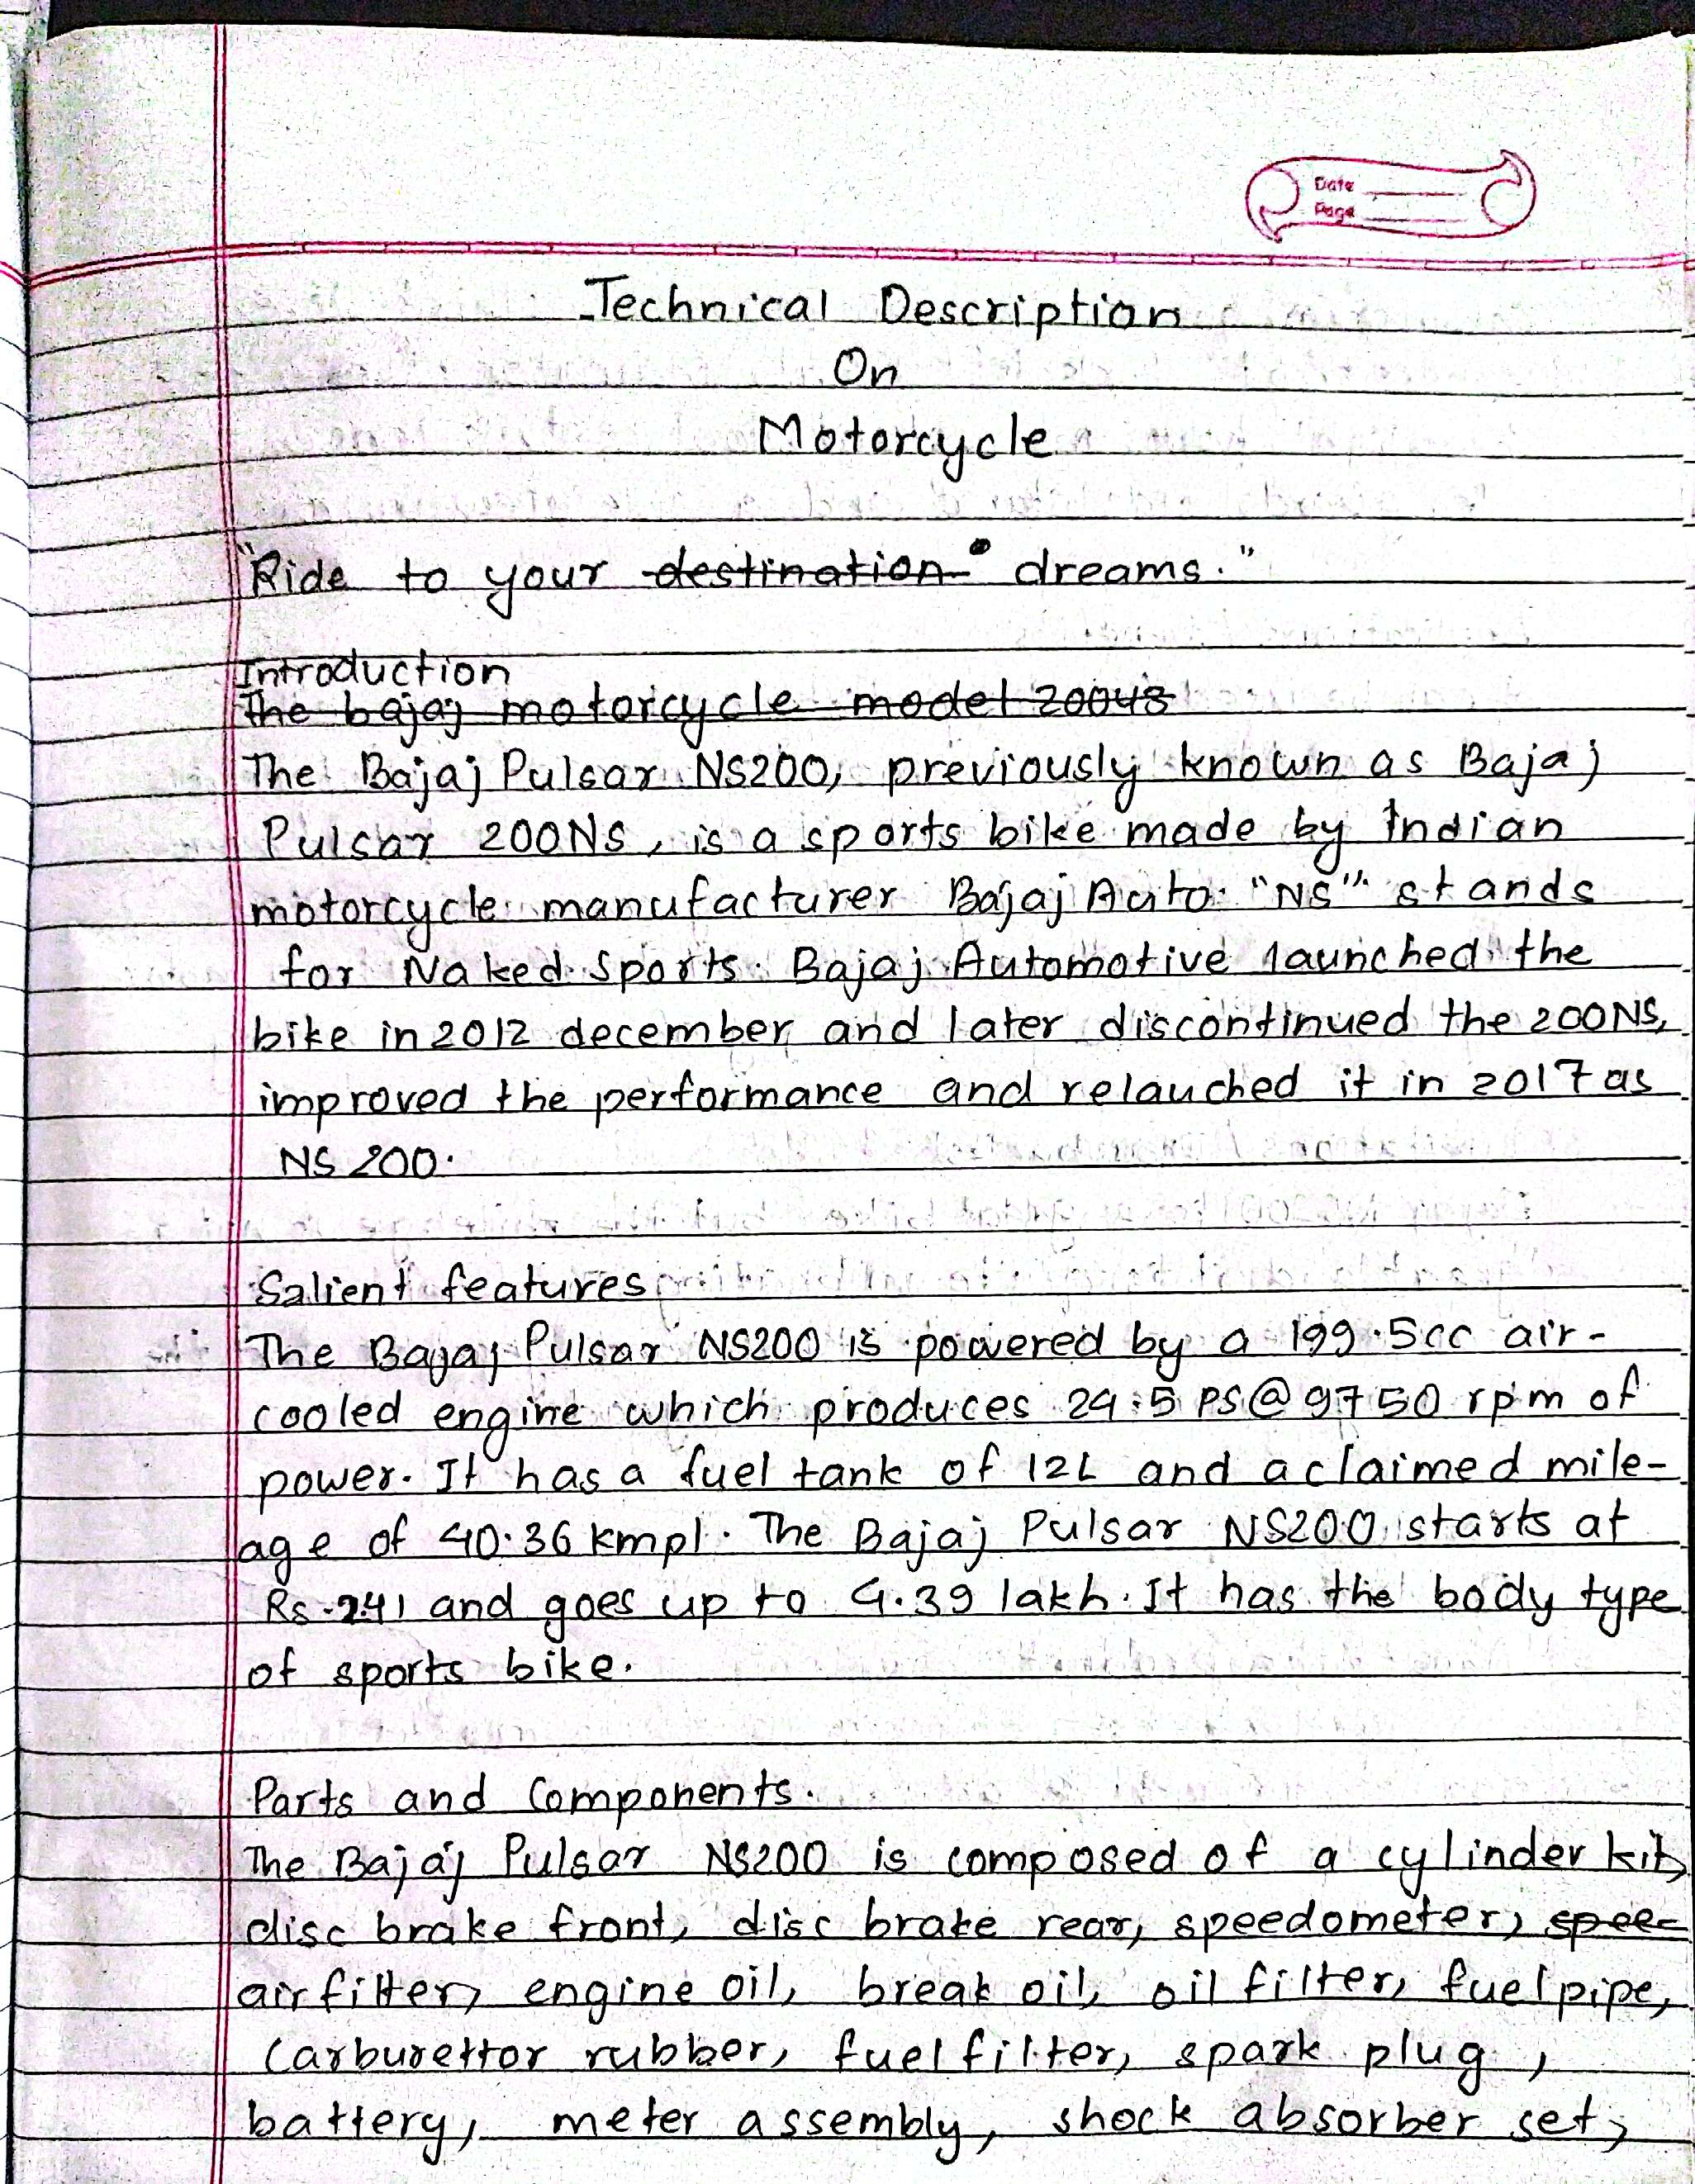 Date
Page
Technical Description
On
Motorcycle
"Ride to your destination dreams."
Introduction
The bajaj motorcycle model 200
The Bajaj Pulsar NS200, previously known as Bajaj
Pulsar 200NS, is a sports bike made by Indian
motorcycle manufacturer Bajaj Auto. "NS" stands
for Naked Sports. Bajaj Automotive launched the
bike in 2012 december, and later discontinued the 200NS,
improved the performance and relauched it in 2017 as
NS 200.
Salient features
The Bajaj Pulsar NS200 is powered by a 199.5cc air-
cooled engine which produces 24.5 PS@9750 rpm of
power. It has a fuel tank of 12L and a claimed mile-
age of 40.36 kmpl. The Bajaj Pulsar NS200 starts at
Rs. 2.41 and goes up to 4.39 lakh. It has the body type
of sports bike.
Parts and Components.
The Bajaj Pulsar NS200 is composed of a cylinder kit,
disc brake front, disc brake rear, speedometer, spee-
air filter, engine oil, break oil, oil filter, fuel pipe,
Carburettor rubber, fuel filter, spark plug,
battery, meter assembly, shock absorber set,